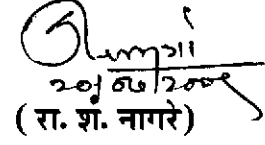 २०/०७/२००९
( रा. श. नागरे)